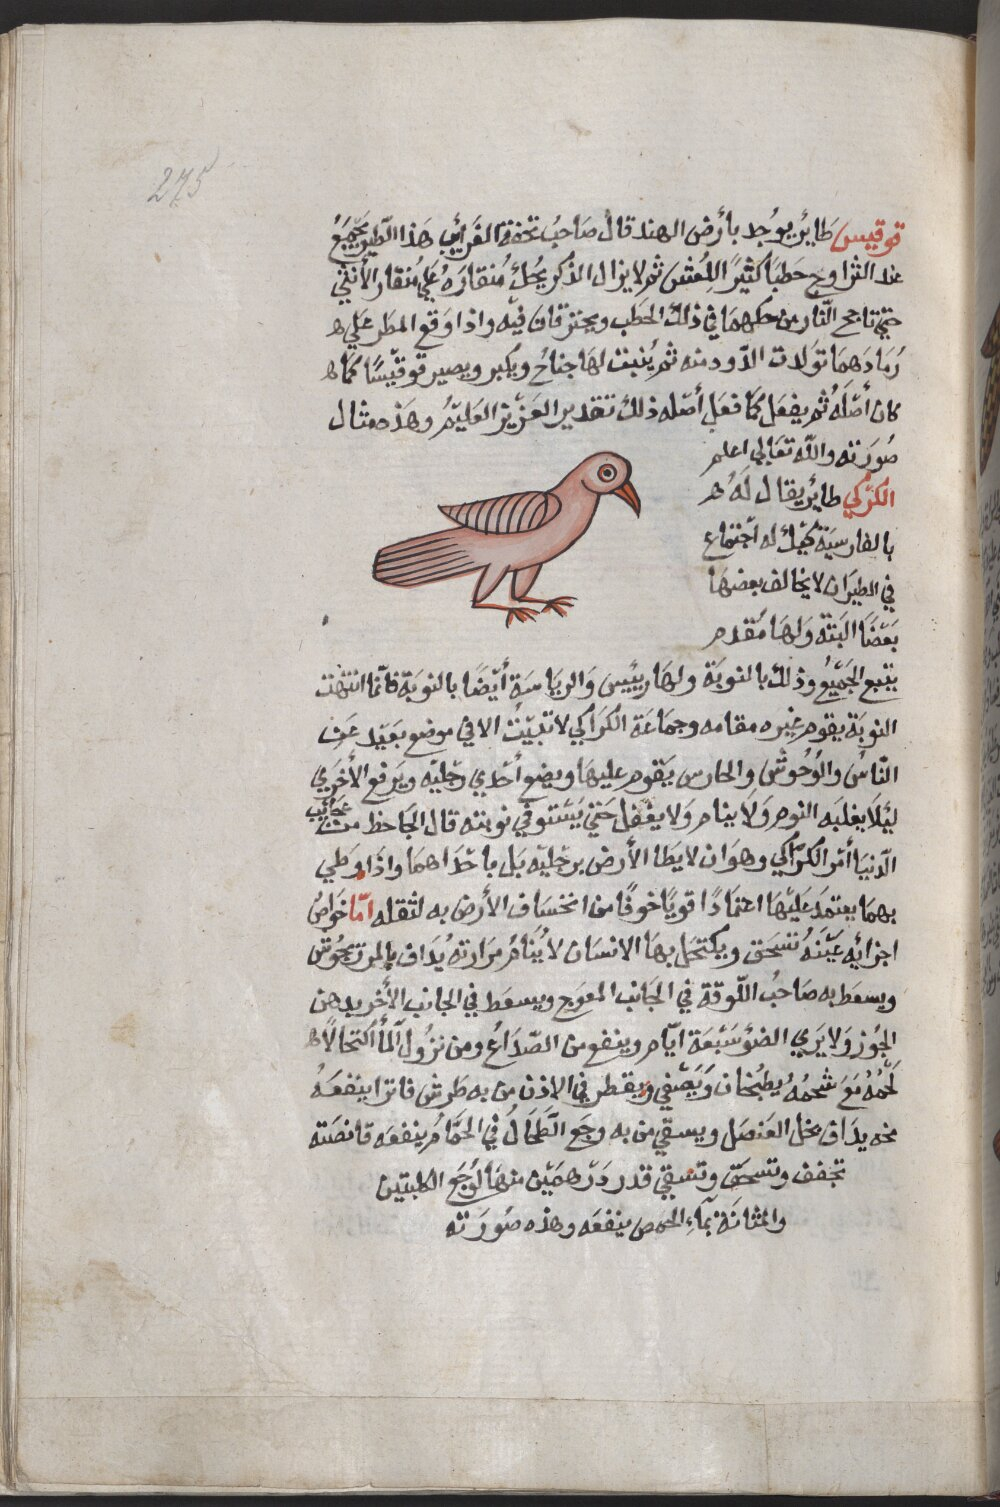 275
قوقيس طَايُر يوُجد بأرض الهند قال صَاحبُ تحفة الغَرائِب هَذا الطير يجَّمِعُ
عند التزاوج حَطبًا كَثيرًا للِعُش ثم لا يزال الذكر يحُك مُنقارَهُ عَلي مُنقار الأنثي
حتي تاجج النَّار من حكهمَا في ذلك الحَطب ويحترقان فيه واذا وَقع المطر عَلي
رُمَادهمَا توَلدت الدّود منه ثم يُنبت لهَا جناحُ ويكبر ويصير قوقيسًا كما
كان أصْلهُ ثم يفعَل كمَا فعَل أصْله ذلك تقدير العَزيز العَليمُ وهَذه مثال
صُورَته والله تعَالي اعلم
الكُرْكي طايُر يقال لَهُ
بالفارسيَة كَلنك له اجْتماع
في الطيَران لا يخالف بعضهَا
بَعْضًا البَتة وَلهَا مُقدم
يتبع الجَمِيعُ وذلك بالنوبَة ولهَا رييس والريَاسَة أيضًا بالنوبَة فاذا انتهَت
النوبَة يقوم غيره مقامه وجماعَة الكرَاكي لا تبيْتُ الا في موضع بعَيْد عَن
النَّاسُ والوُحُوش والحارس يَقوم عليهَا ويضع أحْدي رجليْه ويَرفع الأخري
ليَلا يغلبَه النوم وَلا ينام وَلا يغْفل حَتي يَسْتوفي نوبته قال الجَاحظ من عجَايْب
الدّنيَا أمْر الكُرْكي وهوَ ان لا يَطا الأرض برجليْه بَل باحْدَاهمَا واذَا وَطي
بهمَا يعتمد عَليْهَا اعتمادًا قويًا خوفًا من انخسَاف الأرض به لثقله امّا خوَاصُ
اجزايه عَيْنَهُ تسْحَق ويكتحَل بهَا الانسَان لا يُنَامُ مرَارته يُدَاف بالمرزنجوُش
ويسعَط به صَاحبُ اللّوقة في الجَانب المعوَج ويسعَط في الجانب الأخر بدهن
الجُوز وَلا يَري الضوْ سَبْعَة ايَّام وينفع من الصّدَاعُ ومن نزُول آلْمأ اكتحَالاً
لحْمُهُ مَعَ شحمُهُ يُطبْخان وَيَصْفي ويقطر في الاذن من به طَرش فاترًا ينفعَهُ
مخه يدَاف بخل العَنصل ويسقي من به وجَع الطحَالُ في الحمَّام ينفعَه قانصَته
تجفف وتسحَق وتسْقي قدر دَرْهمَيْن منهَا لوجَع الكليتين
والمثانَة بمَاءِ الحمص ينفعَه وهذه صُورَته